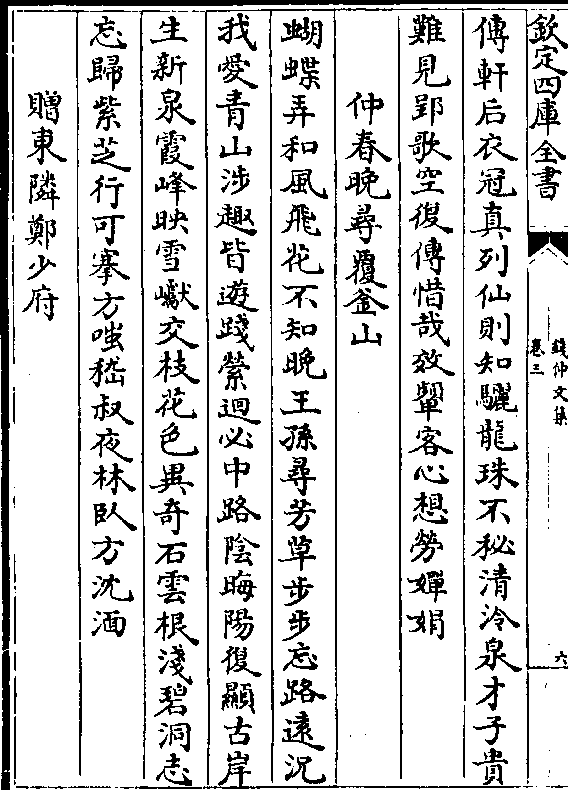 欽定四庫全書
錢仲文集
卷三
六
傳軒后衣冠真列仙則知驪龍珠不秘清泠泉才子貴
難見郢歌空復傳惜哉效顰客心想勞嬋娟
仲春晚尋覆釜山
蝴蝶弄和風飛花不知晚王孫尋芳草步步忘路遠況
我愛青山涉趣皆遊踐縈迴必中路陰晦陽復顯古岸
生新泉霞峰映雪巘交枝花色異奇石雲根淺碧洞志
忘歸紫芝行可搴方嗤嵇叔夜林臥方沈湎
贈東隣鄭少府